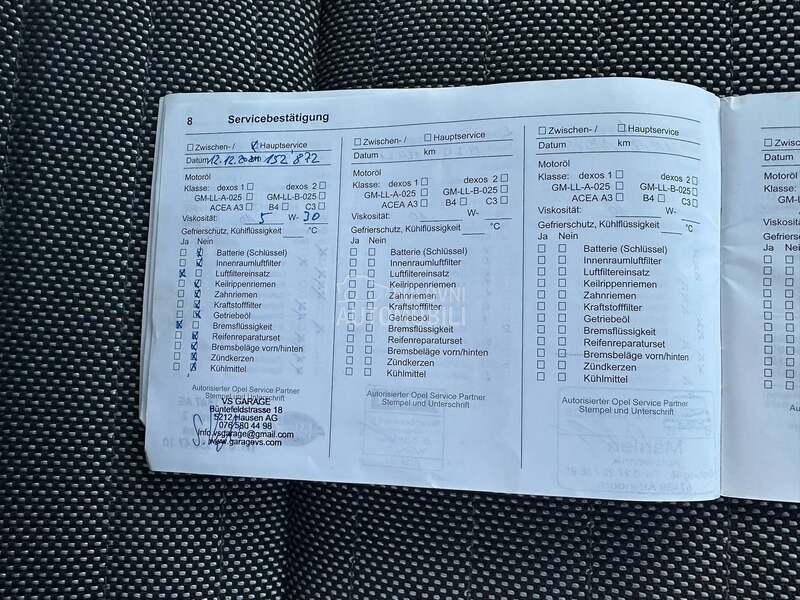 8 Servicebestätigung
Zwischen-/ Hauptservice
Datum 12.12.20 152'872
Motoröl
Klasse: dexos 1 dexos 2
GM-LL-A-025 GM-LL-B-025
ACEA A3 B4 C3
Viskosität: 5 W- 30
Gefrierschutz, Kühlflüssigkeit °C
Ja Nein
Batterie (Schlüssel)
Innenraumluftfilter
Luftfiltereinsatz
Keilrippenriemen
Zahnriemen
Kraftstofffilter
Getriebeöl
Bremsflüssigkeit
Reifenreparaturset
Bremsbeläge vorn/hinten
Zündkerzen
Kühlmittel
Autorisierter Opel Service Partner
Stempel und Unterschrift
VS GARAGE
Büntefeldstrasse 18
5212 Hausen AG
076 580 44 98
info.vsgarage@gmail.com
www.garagevs.com
Zwischen-/ Hauptservice
Datum km
Motoröl
Klasse: dexos 1 dexos 2
GM-LL-A-025 GM-LL-B-025
ACEA A3 B4 C3
Viskosität: W-
Gefrierschutz, Kühlflüssigkeit °C
Ja Nein
Batterie (Schlüssel)
Innenraumluftfilter
Luftfiltereinsatz
Keilrippenriemen
Zahnriemen
Kraftstofffilter
Getriebeöl
Bremsflüssigkeit
Reifenreparaturset
Bremsbeläge vorn/hinten
Zündkerzen
Kühlmittel
Autorisierter Opel Service Partner
Stempel und Unterschrift
Zwischen-/ Hauptservice
Datum km
Motoröl
Klasse: dexos 1 dexos 2
GM-LL-A-025 GM-LL-B-025
ACEA A3 B4 C3
Viskosität: W-
Gefrierschutz, Kühlflüssigkeit °C
Ja Nein
Batterie (Schlüssel)
Innenraumluftfilter
Luftfiltereinsatz
Keilrippenriemen
Zahnriemen
Kraftstofffilter
Getriebeöl
Bremsflüssigkeit
Reifenreparaturset
Bremsbeläge vorn/hinten
Zündkerzen
Kühlmittel
Autorisierter Opel Service Partner
Stempel und Unterschrift
Zwisc
Datum
Motoröl
Klasse:
Viskosität
Gefriersch
Ja Nein